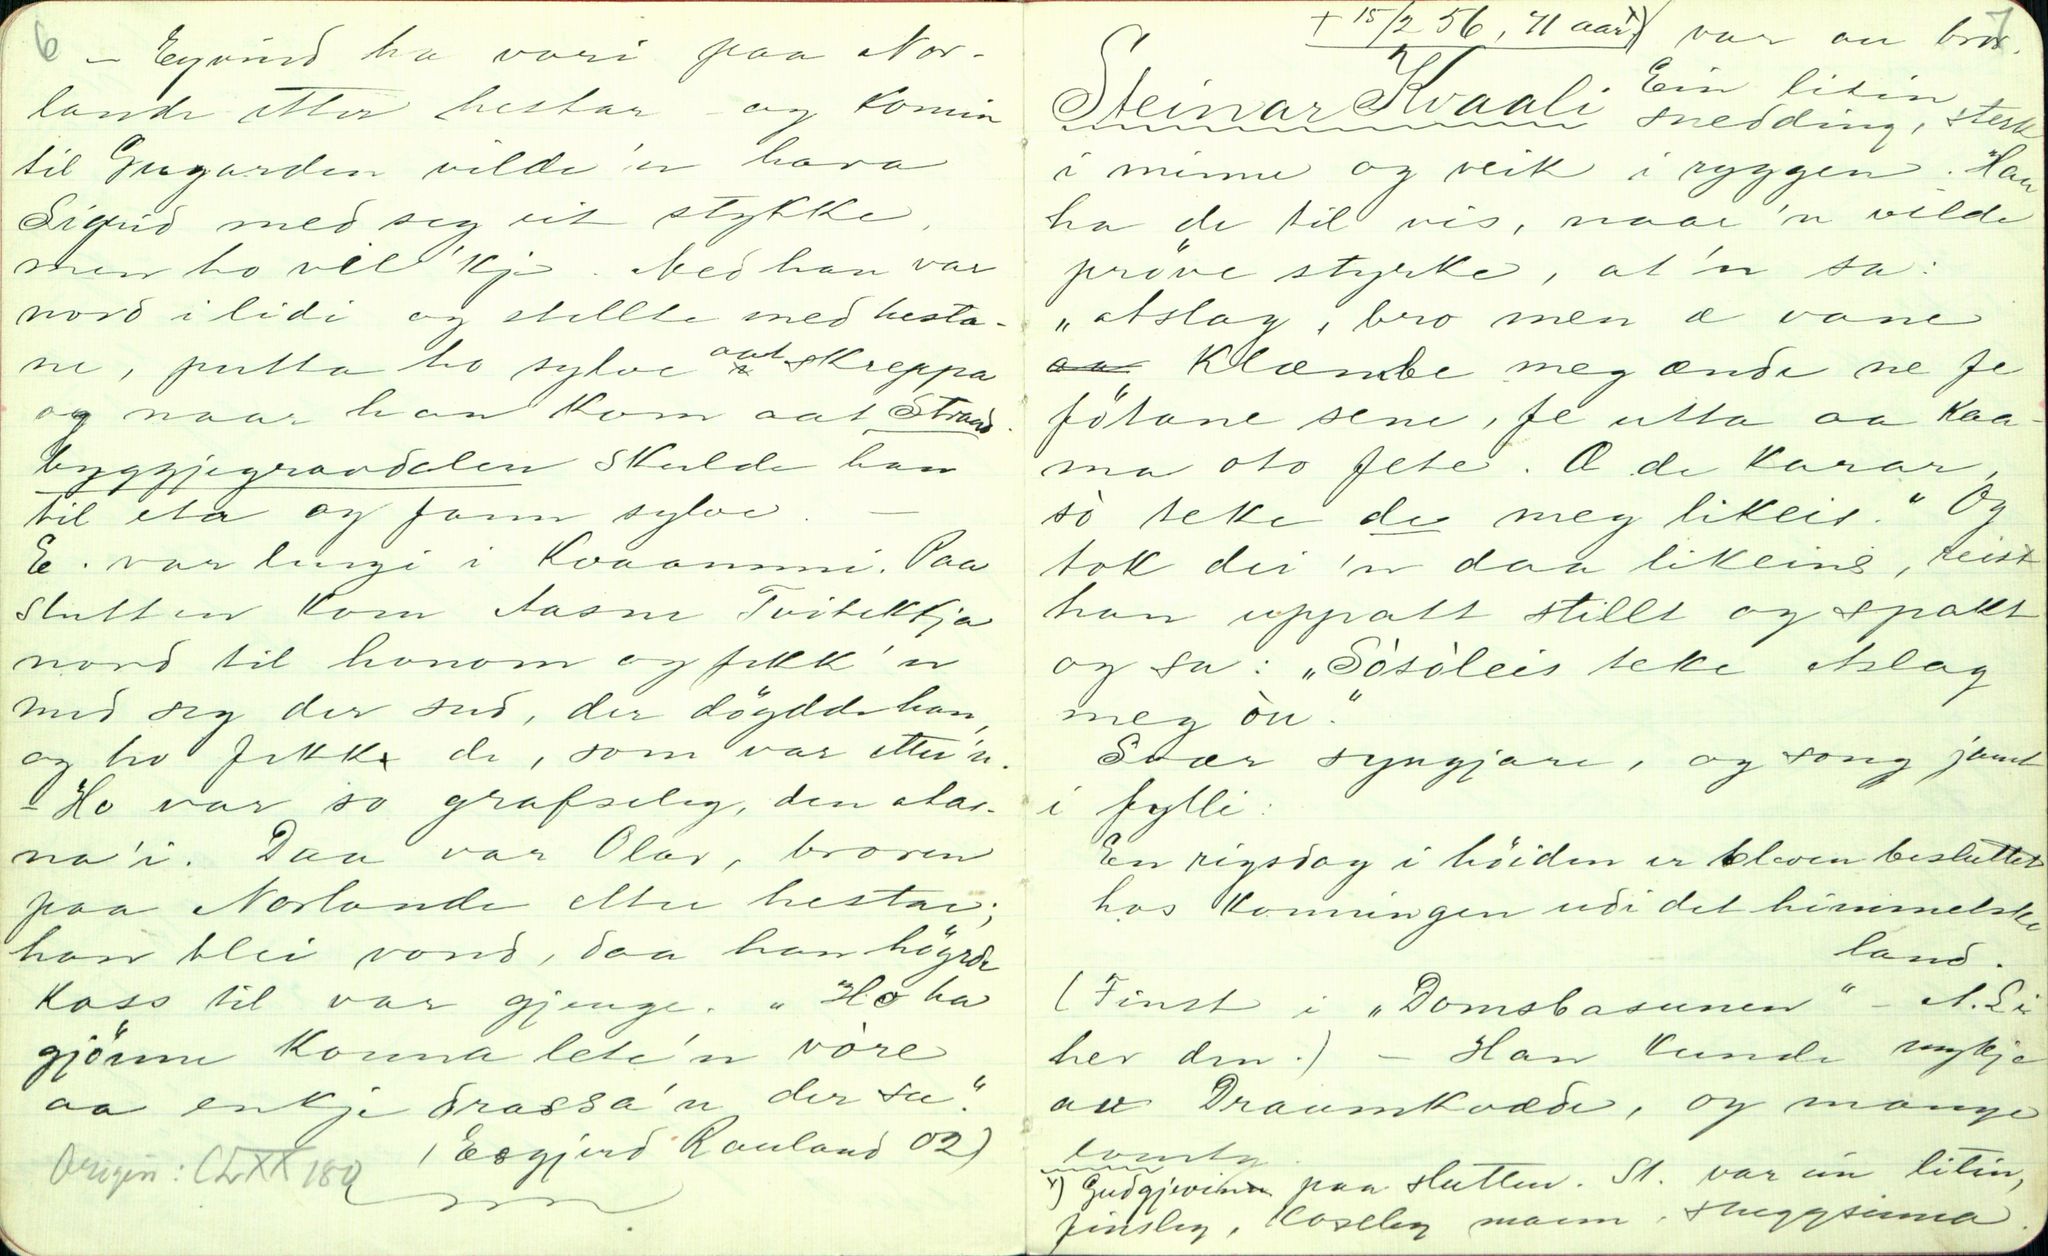 6
– Eyvind ha vori paa Nor-
lande etter hestar – og komin
til Gugarden vilde 'n hava
Sigrid med seg eit stykke,
men ho vil 'kje. Med han var
nord i lidi og stellte med hesta-
ne, putta ho sylve aat skreppa
og naar han kom aat Strand-
byggjegravdalen skulde han
til eta og fann sylve. –
E. var lengi i Kvaammi. Paa
slutten kom Aasne Tvitekkja
nord til honom og fekk 'n
med seg der sud, der döydde han,
og ho fekk de, som var etter 'n.
– Ho var so grafseleg, den Aas-
na 'i. Daa var Olav, broren
paa Norlande etter hestar;
han blei vond, daa han höyrde
koss til var gjenge. „Ho ha
gjönne konna lete 'n vòre
aa enkje drassa 'n der su."
(Esgjerd Rauland 02)
Origin: CLXX 180
7
+ 15/2 56, 71 aar x) var au bror.
Steinar Kvaali Ein litin
snedding, sterk
i minne og veik i ryggen. Han
ha de til vis, naar 'n vilde
pröve styrke, at 'n sa:
„Aslag, bro men æ vane
klæmbe meg ænde ne fe
fötane sene, fe utta aa kaa-
ma oto fete. Æ de karar,
sò teke de meg likeis." Og
tok dei 'n daa likeins, reist
han uppatt stillt og spakt
og sa: „Sòsòleis teke Aslag
meg òu."
Svær syngjare, og song jamt
i fylli:
En rigsdag i höiden er bleven besluttet
hos konningen udi det himmelske
land.
(Finst i „Domsbasunen" – A. Li
hev den.) – Han kunde mykje
av Draumkvæde, og mange
lomty
x) Gudgjevin paa slutten. St. var ein litin,
finsleg, koseleg mann, skuggsinna.